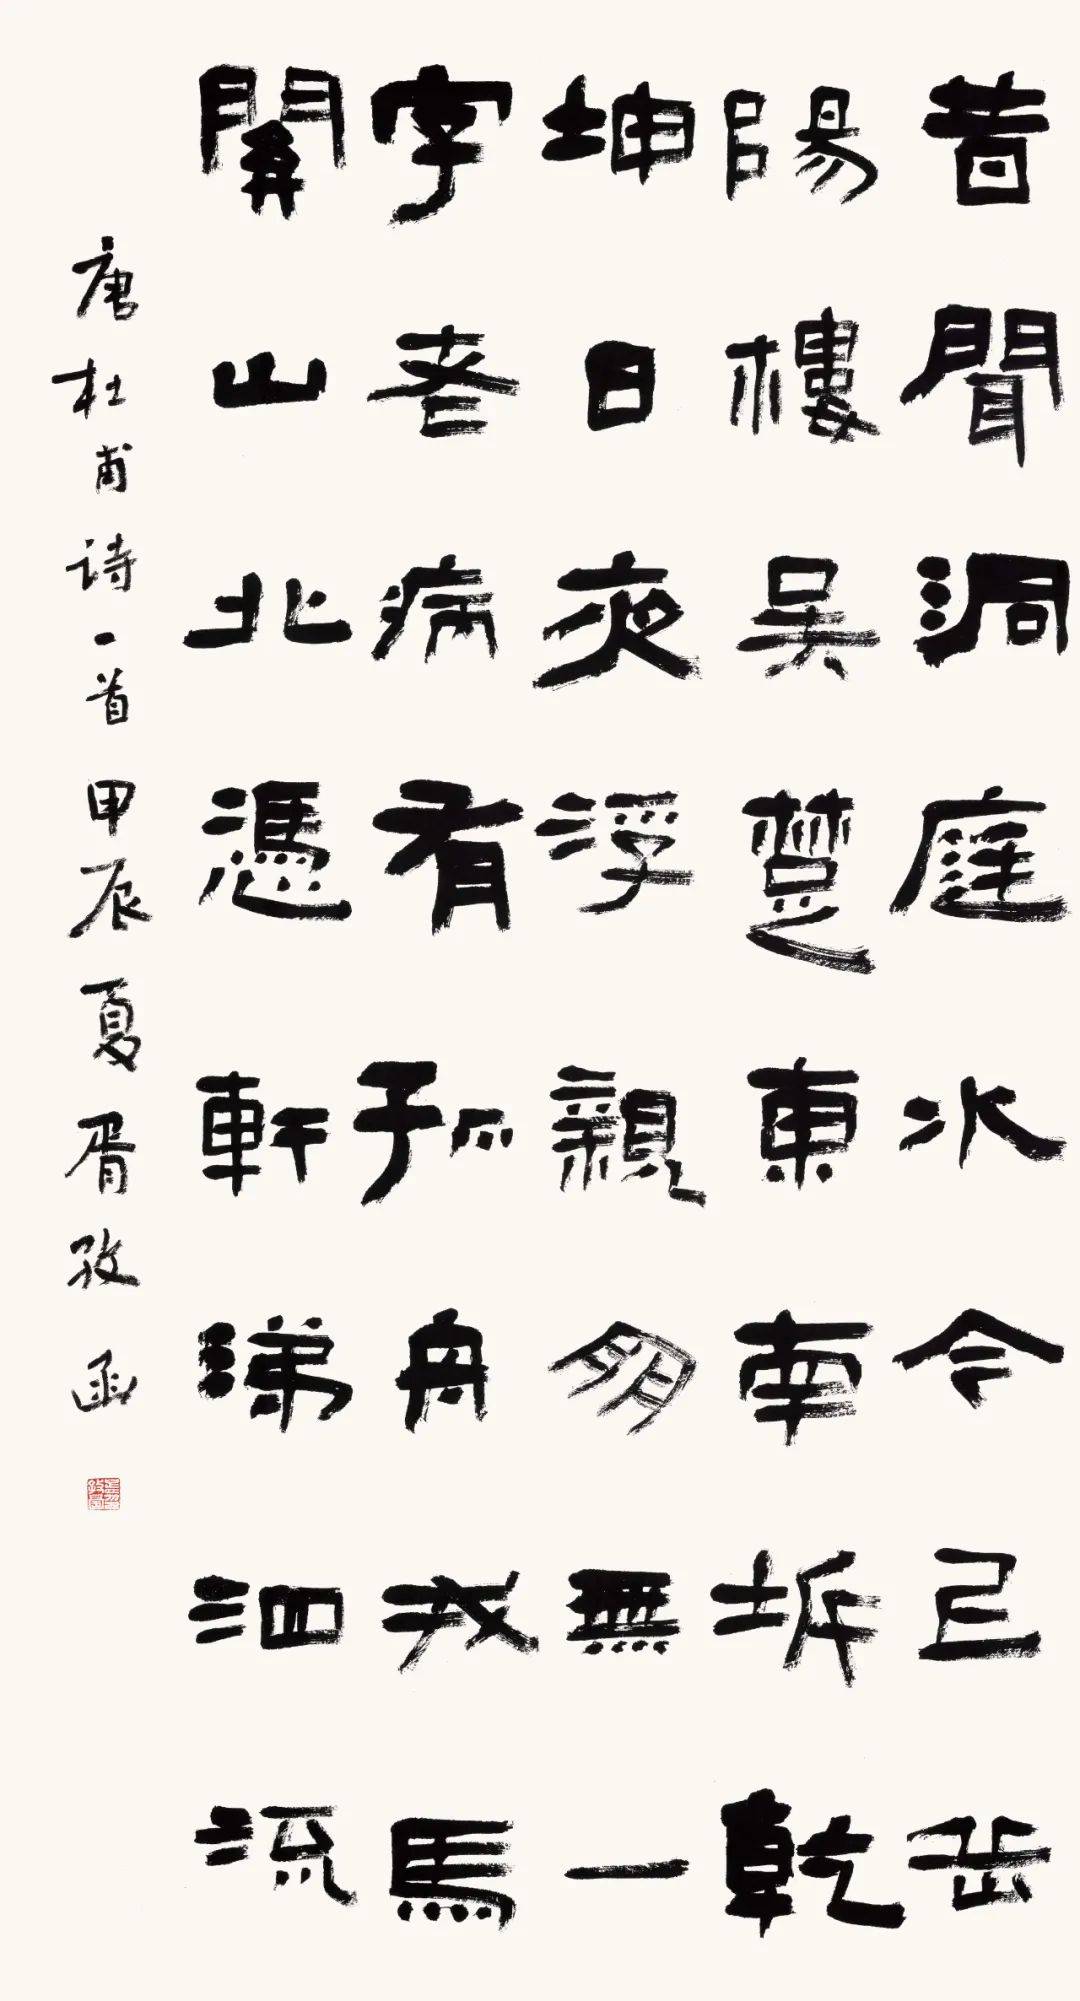 昔聞洞庭水今已岳
陽樓吳楚東南坼乾
坤日夜浮親朋無一
字老病有孤舟戎馬
關山北憑軒涕泗流
唐杜甫诗一首甲辰夏胥孜函